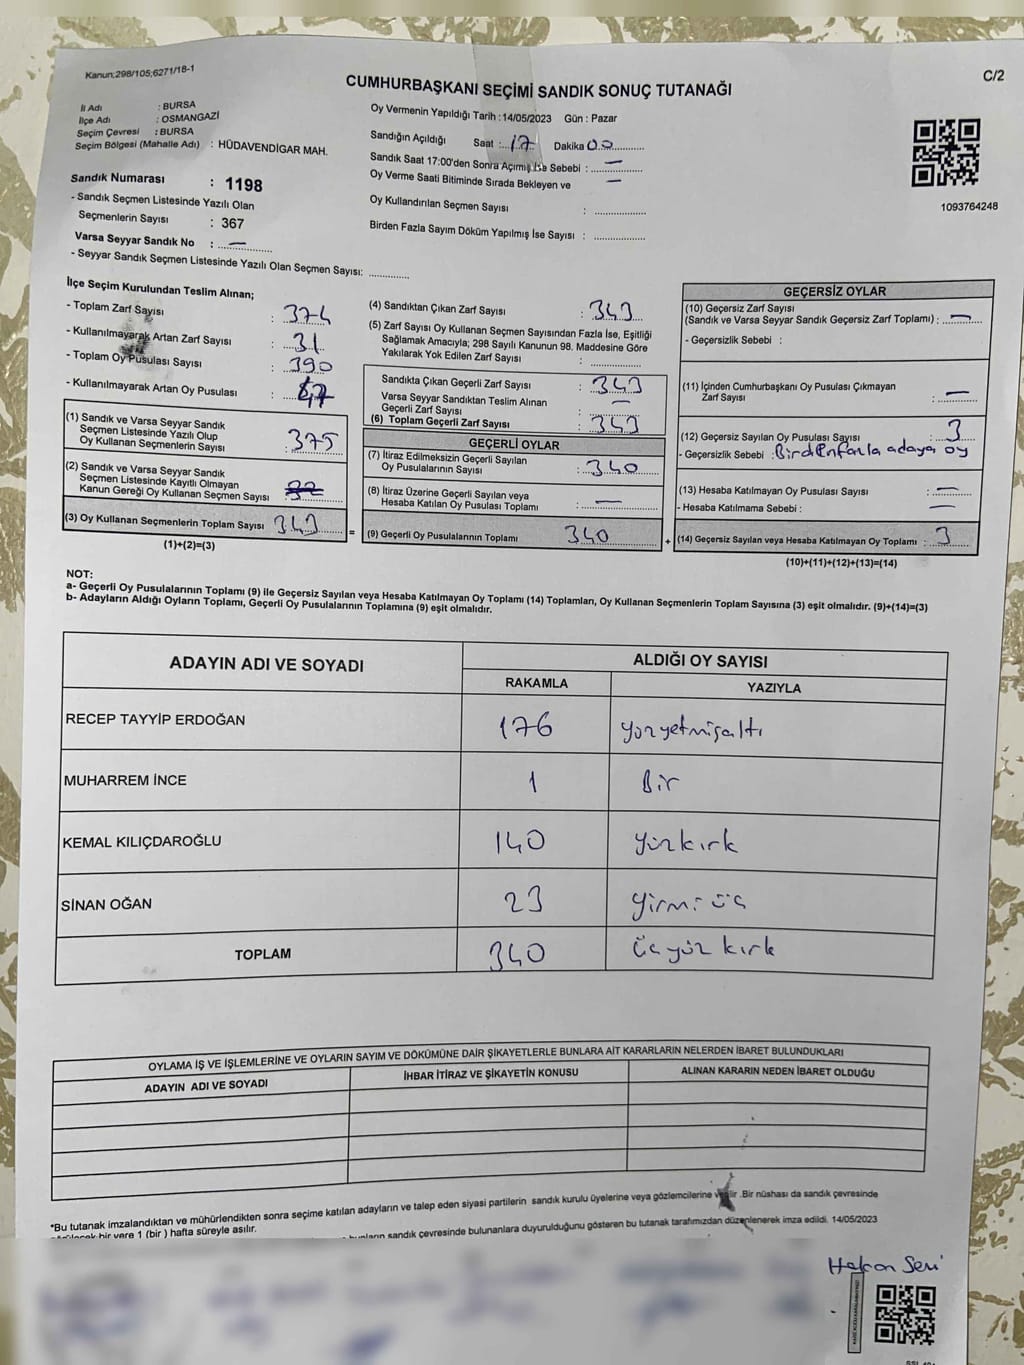 Kanun;298/105;6271/18-1
C/2
CUMHURBAŞKANI SEÇİMİ SANDIK SONUÇ TUTANAĞI
İl Adı : BURSA
İlçe Adı : OSMANGAZİ
Seçim Çevresi : BURSA
Seçim Bölgesi (Mahalle Adı) : HÜDAVENDİGAR MAH.
Sandık Numarası : 1198
- Sandık Seçmen Listesinde Yazılı Olan
Seçmenlerin Sayısı : 367
Varsa Seyyar Sandık No : —
- Seyyar Sandık Seçmen Listesinde Yazılı Olan Seçmen Sayısı: ............
Oy Vermenin Yapıldığı Tarih : 14/05/2023 Gün : Pazar
Sandığın Açıldığı Saat :..17.. Dakika 00............
Sandık Saat 17:00'den Sonra Açılmış İse Sebebi : —
Oy Verme Saati Bitiminde Sırada Bekleyen ve —
Oy Kullandırılan Seçmen Sayısı : ..............
Birden Fazla Sayım Döküm Yapılmış İse Sayısı : ..............
1093764248
İlçe Seçim Kurulundan Teslim Alınan;
- Toplam Zarf Sayısı : 374
- Kullanılmayarak Artan Zarf Sayısı : 31
- Toplam Oy Pusulası Sayısı : 390
- Kullanılmayarak Artan Oy Pusulası : 47
(1) Sandık ve Varsa Seyyar Sandık
Seçmen Listesinde Yazılı Olup
Oy Kullanan Seçmenlerin Sayısı : 375
(2) Sandık ve Varsa Seyyar Sandık
Seçmen Listesinde Kayıtlı Olmayan
Kanun Gereği Oy Kullanan Seçmen Sayısı :
(3) Oy Kullanan Seçmenlerin Toplam Sayısı : 343
(1)+(2)=(3)
(4) Sandıktan Çıkan Zarf Sayısı : 343
(5) Zarf Sayısı Oy Kullanan Seçmen Sayısından Fazla İse, Eşitliği
Sağlamak Amacıyla; 298 Sayılı Kanunun 98. Maddesine Göre
Yakılarak Yok Edilen Zarf Sayısı : ..............
Sandıkta Çıkan Geçerli Zarf Sayısı : 343
Varsa Seyyar Sandıktan Teslim Alınan —
Geçerli Zarf Sayısı :
(6) Toplam Geçerli Zarf Sayısı : 343
GEÇERLİ OYLAR
(7) İtiraz Edilmeksizin Geçerli Sayılan
Oy Pusulalarının Sayısı : 340
(8) İtiraz Üzerine Geçerli Sayılan veya
Hesaba Katılan Oy Pusulası Toplamı : —
= (9) Geçerli Oy Pusulalarının Toplamı 340 +
GEÇERSİZ OYLAR
(10) Geçersiz Zarf Sayısı
(Sandık ve Varsa Seyyar Sandık Geçersiz Zarf Toplamı) : —
- Geçersizlik Sebebi :
(11) İçinden Cumhurbaşkanı Oy Pusulası Çıkmayan
Zarf Sayısı : —
(12) Geçersiz Sayılan Oy Pusulası Sayısı : 3
- Geçersizlik Sebebi : Birden fazla adaya oy
(13) Hesaba Katılmayan Oy Pusulası Sayısı : —
- Hesaba Katılmama Sebebi : —
(14) Geçersiz Sayılan veya Hesaba Katılmayan Oy Toplamı : 3
(10)+(11)+(12)+(13)=(14)
NOT:
a- Geçerli Oy Pusulalarının Toplamı (9) ile Geçersiz Sayılan veya Hesaba Katılmayan Oy Toplamı (14) Toplamları, Oy Kullanan Seçmenlerin Toplam Sayısına (3) eşit olmalıdır. (9)+(14)=(3)
b- Adayların Aldığı Oyların Toplamı, Geçerli Oy Pusulalarının Toplamına (9) eşit olmalıdır.
ADAYIN ADI VE SOYADI
ALDIĞI OY SAYISI
RAKAMLA YAZIYLA
RECEP TAYYİP ERDOĞAN 176 yüzyetmişaltı
MUHARREM İNCE 1 Bir
KEMAL KILIÇDAROĞLU 140 yüzkırk
SİNAN OĞAN 23 yirmi üç
TOPLAM 340 üçyüz kırk
OYLAMA İŞ VE İŞLEMLERİNE VE OYLARIN SAYIM VE DÖKÜMÜNE DAİR ŞİKAYETLERLE BUNLARA AİT KARARLARIN NELERDEN İBARET BULUNDUKLARI
ADAYIN ADI VE SOYADI İHBAR İTİRAZ VE ŞİKAYETİN KONUSU ALINAN KARARIN NEDEN İBARET OLDUĞU
*Bu tutanak imzalandıktan ve mühürlendikten sonra seçime katılan adayların ve talep eden siyasi partilerin sandık kurulu üyelerine veya gözlemcilerine verilir .Bir nüshası da sandık çevresinde
bir yere 1 (bir ) hafta süreyle asılır.
sandık çevresinde bulunanlara duyurulduğunu gösteren bu tutanak tarafımızdan düzenlenerek imza edildi. 14/05/2023